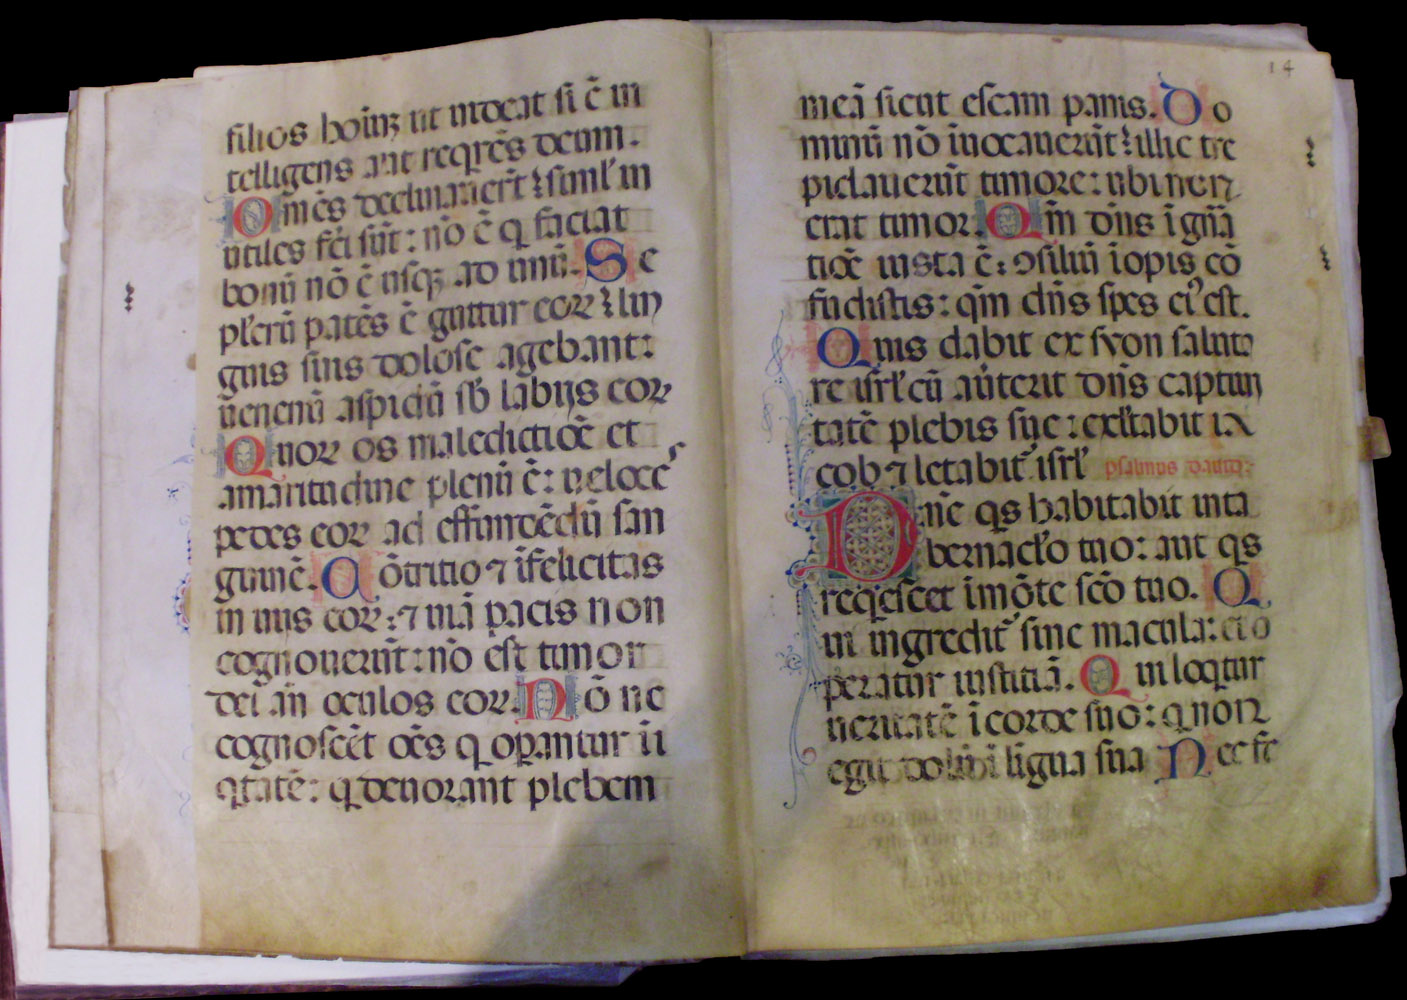 filios hoīꝝ ut uideat si ē in
telligens aut requirēs deum.
Omēs declinauer̄t ⁊ simul̕ in
utiles fc̄i sūt: nō ē q̇ faciat
bonū nō ē usqꝫ ad unū. Se
pulcrū patēs ē guttur eoꝝ ⁊ lin
guis suis dolose agebant:
uenenū aspidū sb̄ labijs eoꝝ
Quoꝝ os maledictiōe et
amaritudine plenū ē: ueloces
pedes eoꝝ ad effundēdū san
guinē. Cōtritio ⁊ īfelicitas
in uiis eoꝝ: ⁊ uiā pacis non
cognouerūt: nō est timor
dei añ oculos eoꝝ. Nōne
cognoscēt oēs q̇ oꝑantur īi
qtatē: q̇ deuorant plebem
14
meā sicut escam panis. Do
minū nō īuocauerūt ⁊ illic tre
pidauerūt timore: ubi non
erat timor. Qm̄ dn̄s ī gn̄a
tiōe iusta ē: ꝯsiliū īopis cō
fudistis: qm̄ dn̄s spes eiꝰ est.
Quis dabit ex syon saluta
re isrl̕ cū auerterit dn̄s captiui
tatē plebis sue: exultabit ia
cob ⁊ letabit̕ isrl̕ psalmus dauid:
Dn̄e qs habitabit in ta
bernacl̕o tuo: aut qs
requiescet ī mōte scō tuo. Q
ui ingredit̕ sine macula: et o
peratur iustitiā. Qui loqtur
ueritatē ī corde suo: q̇ non
egit dolum ī ligua sua Nec fe